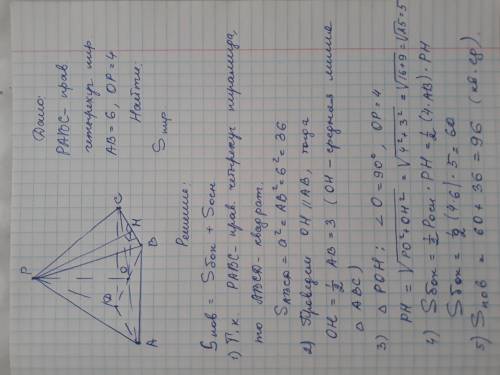 Дано:
PABCD - прав
четырехуг. пир
AB = 6, OP = 4
Найти:
Sпир
P
A
B
C
D
O
H
Решение:
Sпов = Sбок + Sосн
1) Т.к. PABC - прав. четырехуг. пирамида,
то ABCD - квадрат.
SABCD = a² = AB² = 6² = 36
2) Проведем OH || AB, тогда
OH = 1/2 AB = 3 (OH - средняя линия
△ ABC)
3) △ POH: ∠O = 90°, OP = 4
PH = √PO² + OH² = √4² + 3² = √16 + 9 = √25 = 5
4) Sбок = 1/2 Pосн · PH = 1/2 (4 · AB) · PH
Sбок = 1/2 (4 · 6) · 5 = 60
5) Sпов = 60 + 36 = 96 (кв. ед)